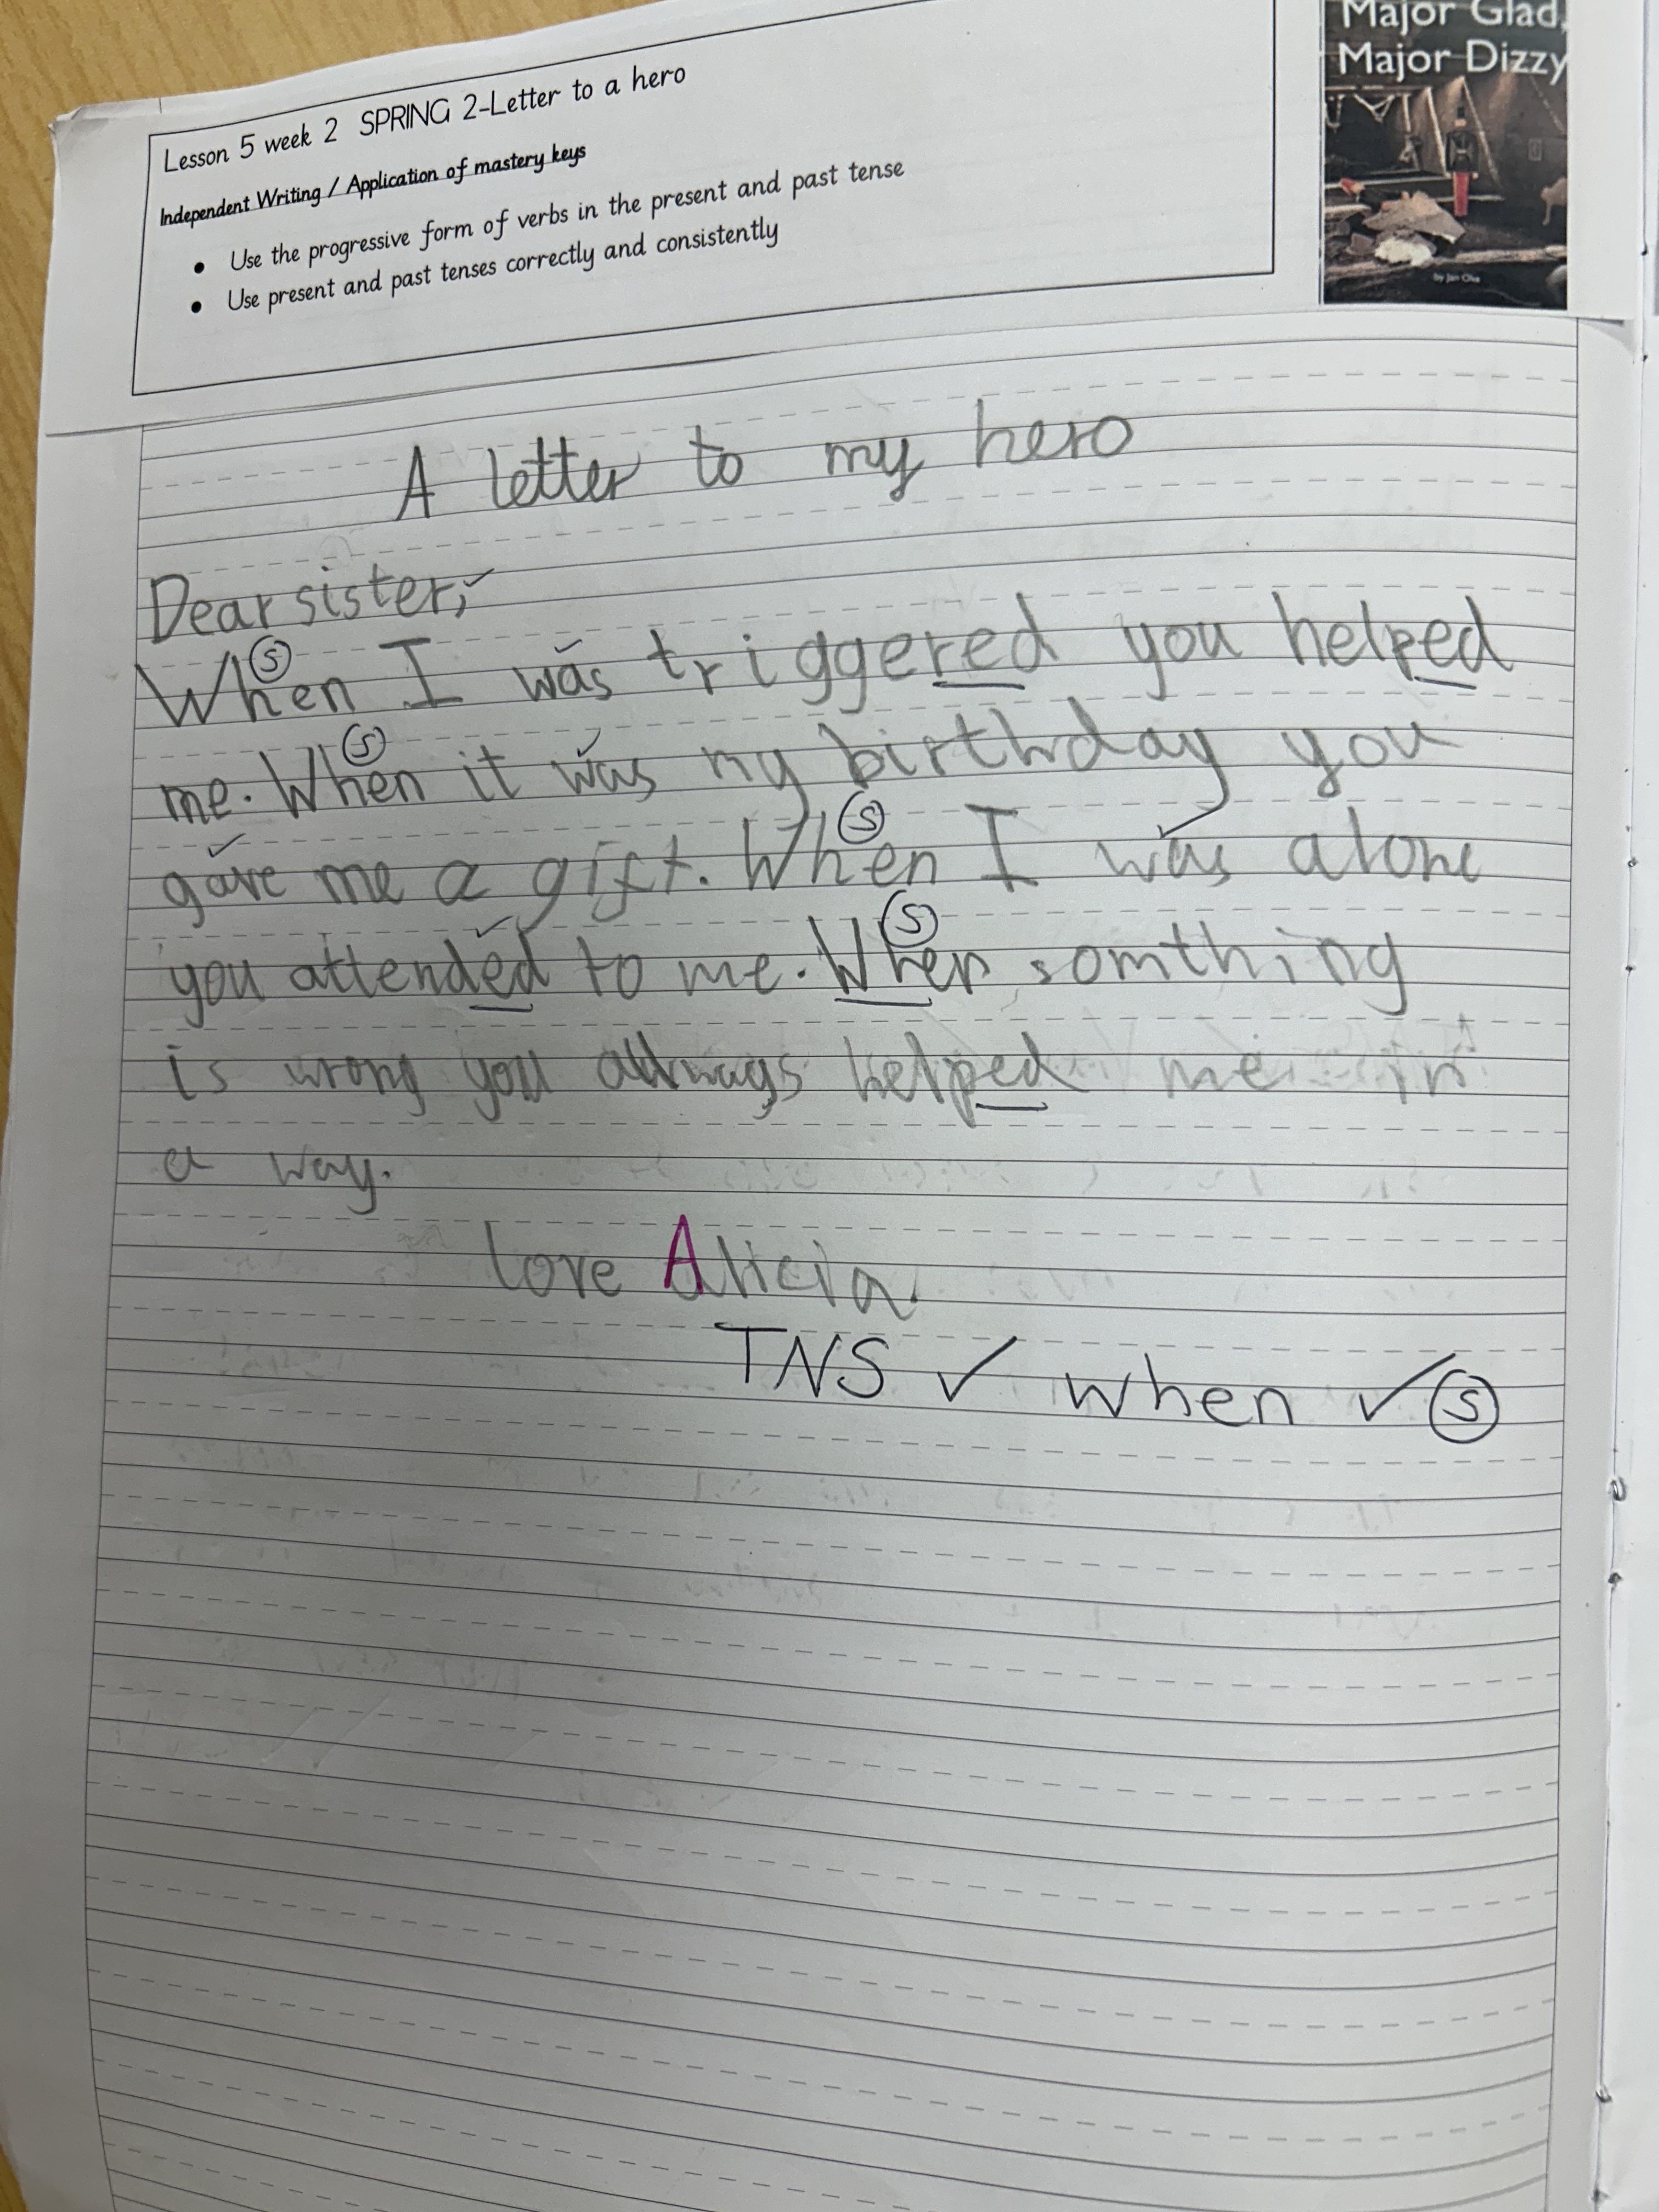 Major Glad,
Major Dizzy
by Jan Oke
Lesson 5 week 2 SPRING 2-Letter to a hero
Independent Writing / Application of mastery keys
• Use the progressive form of verbs in the present and past tense
• Use present and past tenses correctly and consistently
A letter to my hero
Dear sister,
When I was triggered you helped
me. When it was my birthday you
gave me a gift. When I was alone
you attended to me. When somthing
is wrong you allways helped me in
a way.
love Alicia.
TNS ✓ when ✓ Ⓢ